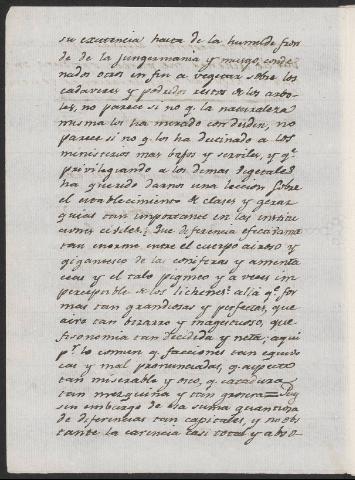 su existencia hasta de la humilde fron
de de la jungermania y musgo, conde
nados otros en fin a vegetar sobre los
cadaveres y podridos restos de los arbo-
les, no parece si no q. la naturaleza
misma los ha mirado con desden, no
parece si no q. los ha destinado a los
ministerios mas bajos y serviles, y q.e
privilegiando a los demas vegetales
ha querido darnos una leccion sobre
el establecimiento de clases y gerar
quias tan importante en las institu
ciones civiles. Que diferencia efectivam.te
tan enorme entre el cuerpo aereo y
gigantesco de las coniferas y amenta
ceas y el talo pigmeo y a veces im
perceptible de los lichenes! alli q.e for
mas tan grandiosas y perfectas, que
aire tan bizarro y magestuoso, que
fisonomia tan decidida y neta; aqui
p.r lo comun q. facciones tan equivo
cas y mal pronunciadas, q. aspecto
tan miserable y q. catadura
tan mezquina y tan grosera = Pues
sin embargo de esa suma quantiosa
de diferencias tan capitales, y no obs
tante la carencia casi total y abso-